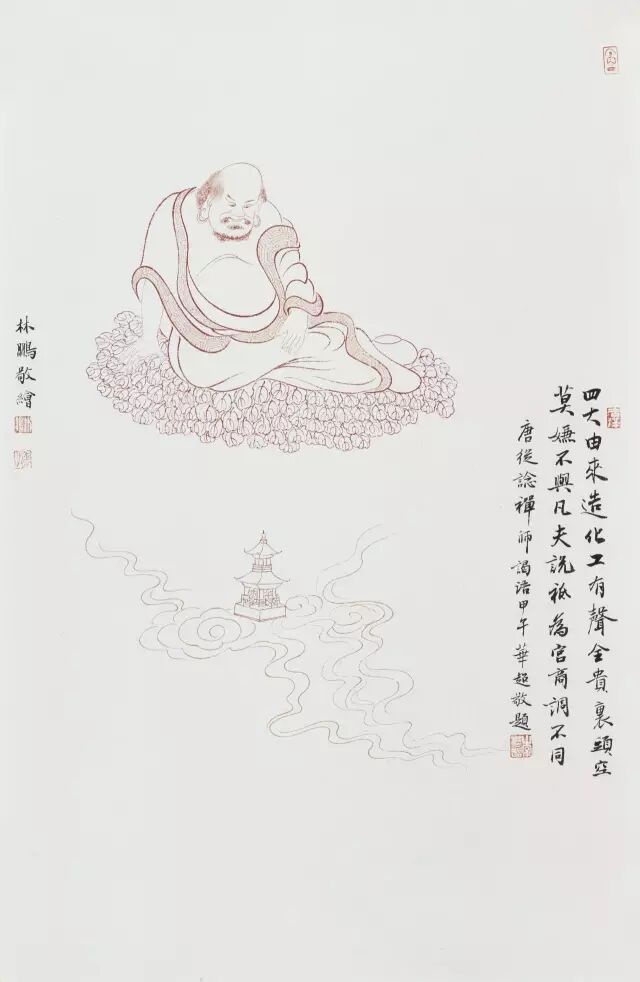 四大由來造化工有聲全貴裏頭空
莫嫌不與凡夫說祗為宮商調不同
唐從諗禪師謁語甲午華超敬題
林鵬敬繪